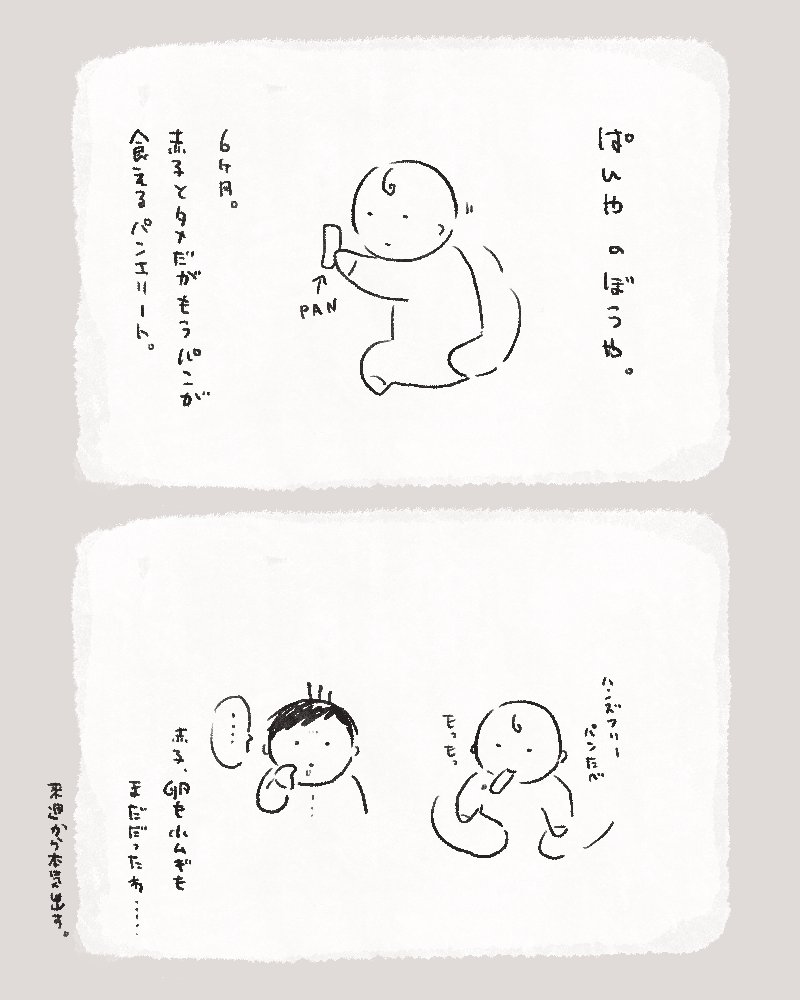 ぱいやのぼうや。
PAN
6ケ月。
赤子とタメだがもうパンが
食えるパンエリート。
ハンズフリー
パンたべ
モっモっ
……
赤子、卵も小ムギも
まだだったね……
来週から本気出す。